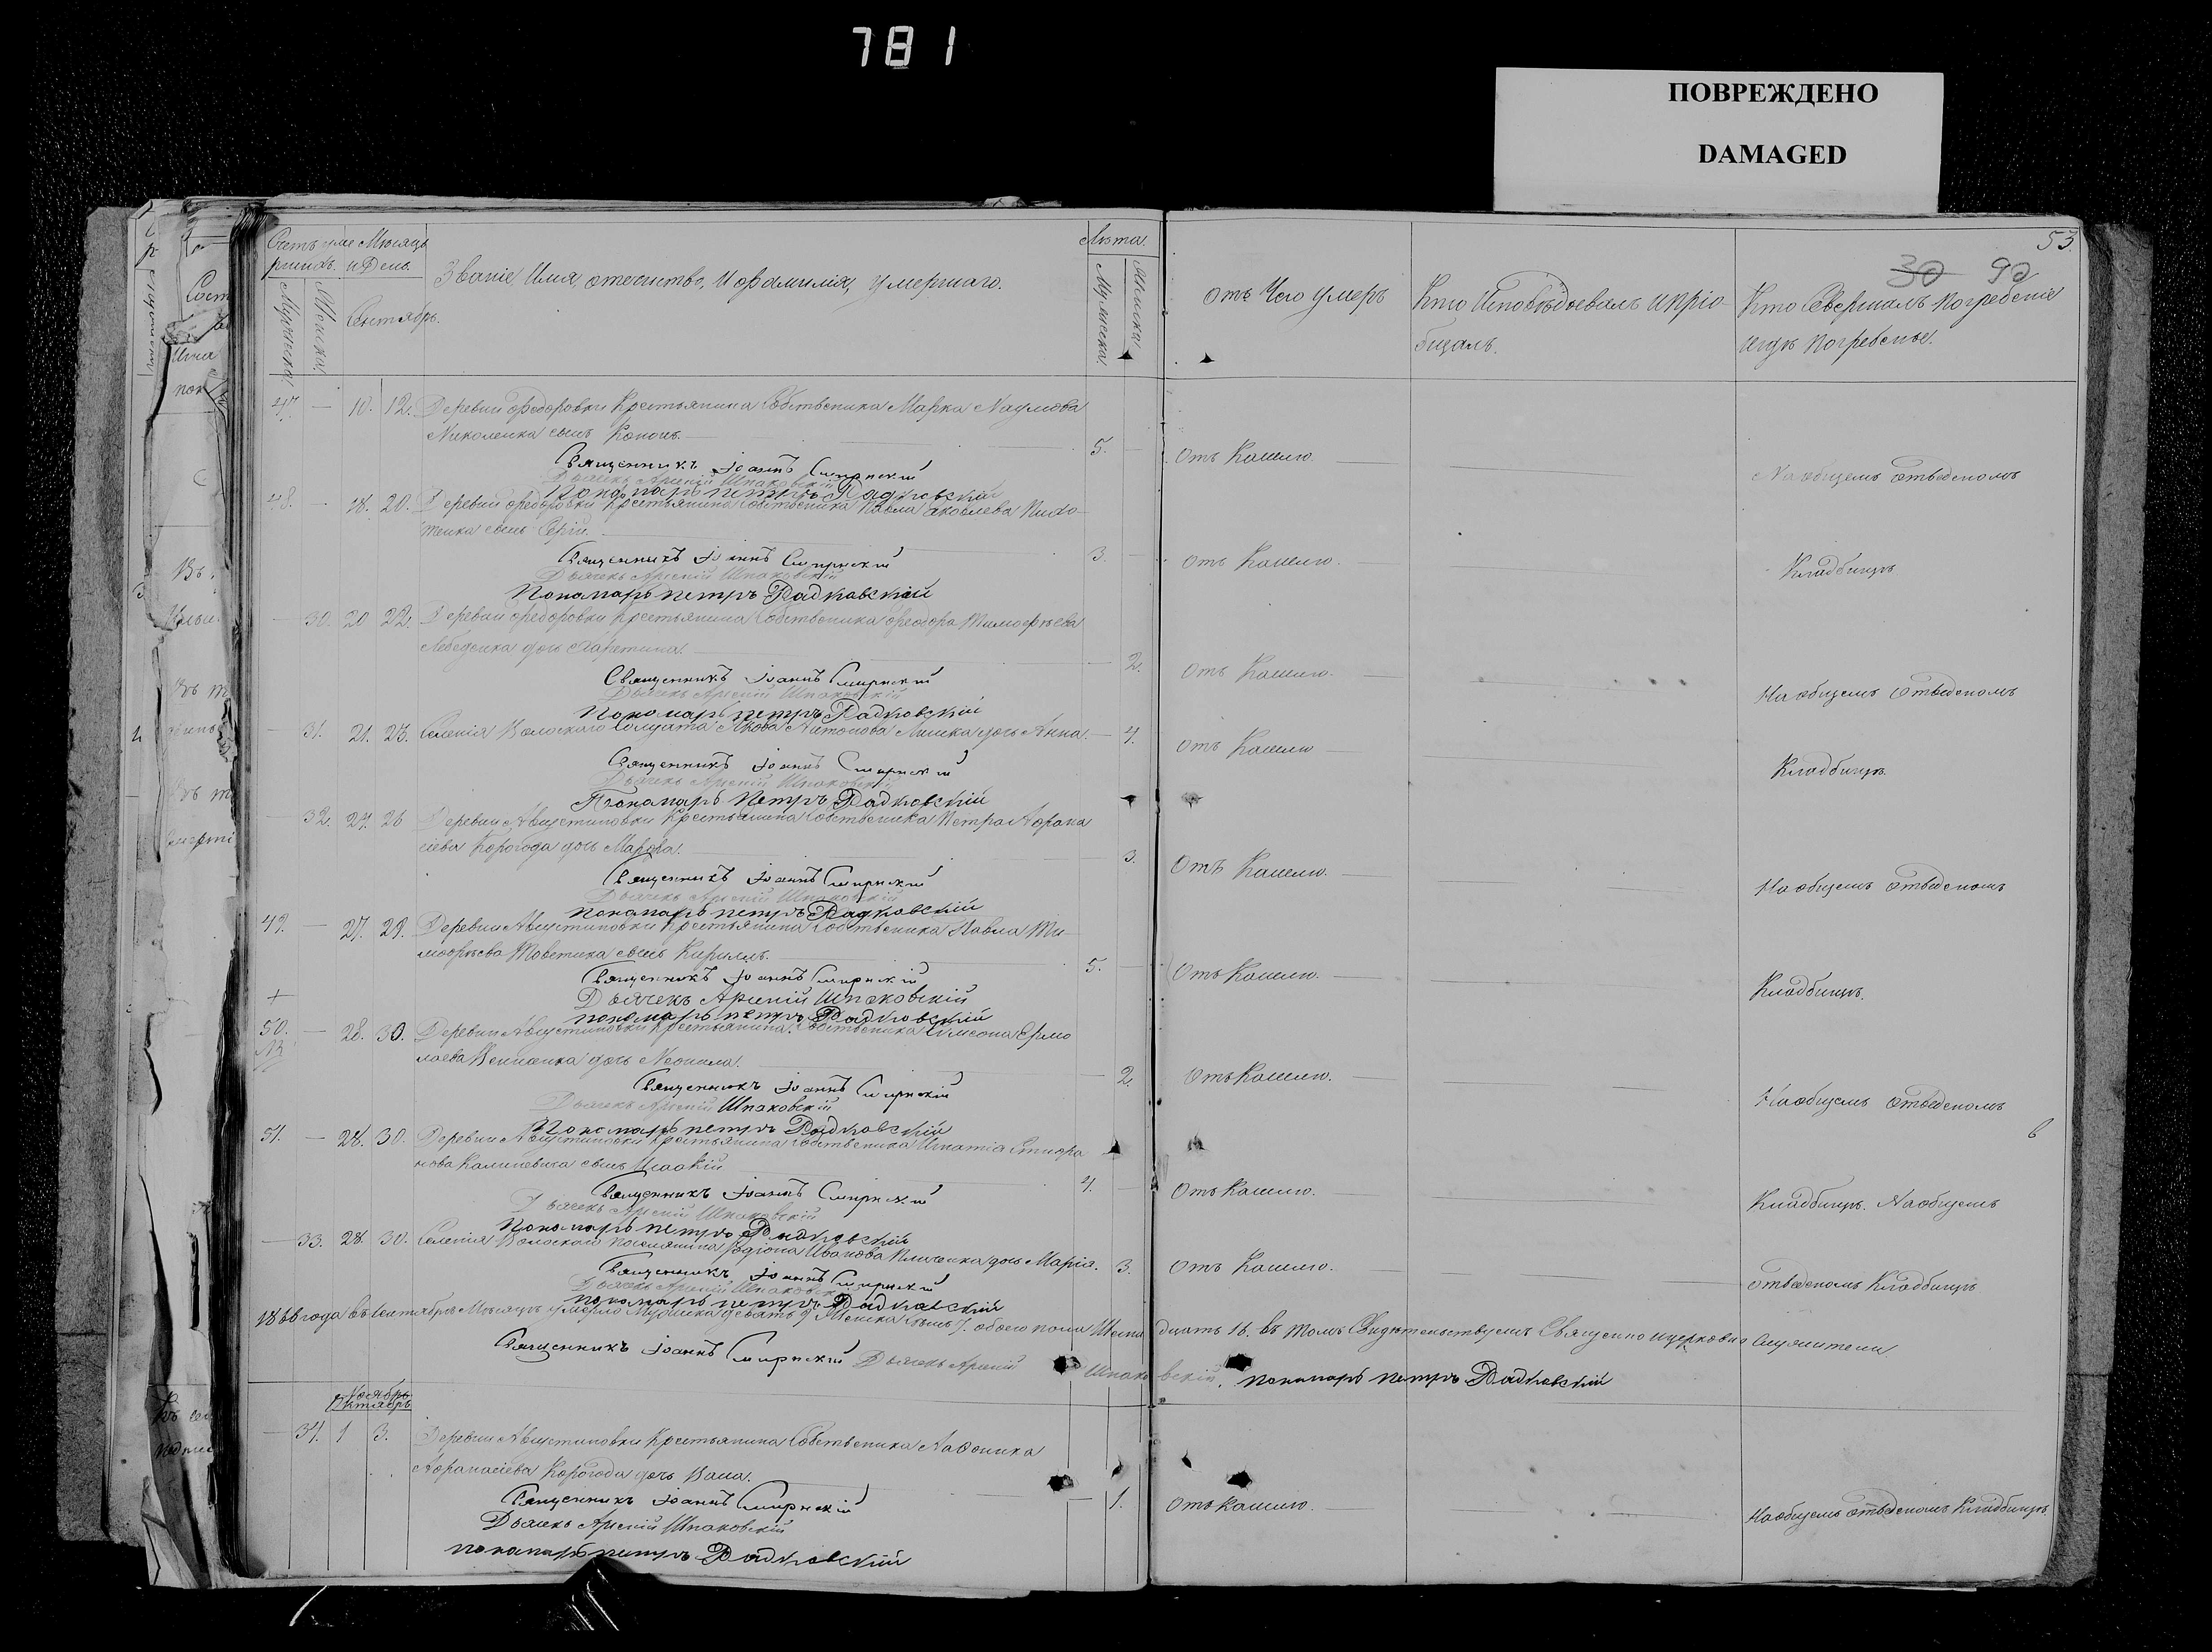 781
ПОВРЕЖДЕНО
DAMAGED
53
30 90
Счетъ уме Мѣсяцъ
ршихъ. и День.
Мужеска. Женска.
Сентябрь.
Званіе, Имя, отечество, и фамилія, умершаго.
Лѣта.
Мужеска. Женска.
Отъ Чего умеръ
Кто Исповѣдывалъ и пріо-
бщалъ.
Кто Совершалъ погребеніе
и гдѣ погребены.
47. — 10. 12. Деревни Федоровки Крестьянина Собственика Марка Наумова
Николенка сынъ Кононъ. 5. Отъ Кашлю.
Священникъ Іоаннъ Смирнскій На общемъ отведеномъ
Дьячекъ Арсеній Шпаковскій
Пономарь петръ Радковскій
48. — 18. 20. Деревни Федоровки Крестьянина Собственика Павла Яковлева
сынъ Сергій. 3. Отъ Кашлю.
Священникъ Іоаннъ Смирнскій Кладбищѣ
Дьячекъ Арсеній Шпаковскій
Пономарь петръ Радковскій
— 30. 20 22. Деревни Федоровки Крестьянина Собственика Феодора Тимофѣева
Лебеденка дочь Харитина. 2. Отъ Кашлю.
Священникъ Іоаннъ Смирнскій На общемъ Отведеномъ
Дьячекъ Арсеній Шпаковскій
Пономарь петръ Радковскій
— 31. 21. 23. Селенія Волоскаго Солдата Якова Антонова дочь Анна. — 4. Отъ Кашлю
Священникъ Іоаннъ Смирнскій Кладбищѣ.
Дьячекъ Арсеній Шпаковскій
Пономарь Петръ Радковскій
32. 24. 26 Деревни Августиновки Крестьянина Собственика Петра Афана
сіева Корогода дочь Марфа. 3. Отъ Кашлю.
Священникъ Іоаннъ Смирнскій На общемъ Отведеномъ
Дьячекъ Арсеній Шпаковскій
пономарь петръ Радковскій
49. — 27. 29. Деревни Августиновки Крестьянина Собственика Павла Ти-
мофѣева сынъ Кирилъ. 5. Отъ Кашлю.
Священникъ Іоаннъ Смирнскій Кладбищѣ.
Дьячекъ Арсеній Шпаковскій
пономарь петръ Радковскій
+
50. — 28. 30. Деревни Августиновки Крестьянина Собственика Симеона Ермо
лаева дочь Неонила. 2. Отъ Кашлю.
Священникъ Іоаннъ Смирнскій На общемъ Отведеномъ
Дьячекъ Арсеній Шпаковскій
Пономарь петръ Радковскій
51. — 28. 30. Деревни Августиновки Крестьянина Собственика Игнатія
сынъ Исаакій 4. Отъ Кашлю.
Священникъ Іоаннъ Смирнскій Кладбищѣ. На общемъ
Дьячекъ Арсеній Шпаковскій
Пономарь петръ Радковскій
— 33. 28. 30. Селенія Волоскаго поселянина Родіона Иванова дочь Марія. 3. Отъ Кашлю.
Священникъ Іоаннъ Смирнскій Отведеномъ Кладбищѣ
Дьячекъ Арсеній Шпаковскій
пономарь петръ Радковскій
1866 года въ Сентябрѣ Мѣсяцѣ умерло Мужеска девять 9 Женска семь 7. обоего пола Шестнадцать 16. въ томъ Свидѣтельствуемъ Священно и церковно служители
Священникъ Іоаннъ Смирнскій Дьячекъ Арсеній Шпаковскій. пономарь петръ Радковскій
Ноябрь
Октябрь
— 34. 1 3. Деревни Августиновки Крестьянина Собственика
Афанасіева Корогода дочь 1. Отъ кашлю.
Священникъ Іоаннъ Смирнскій На общемъ отведеномъ Кладбищѣ.
Дьячекъ Арсеній Шпаковскій
пономарь петръ Радковскій